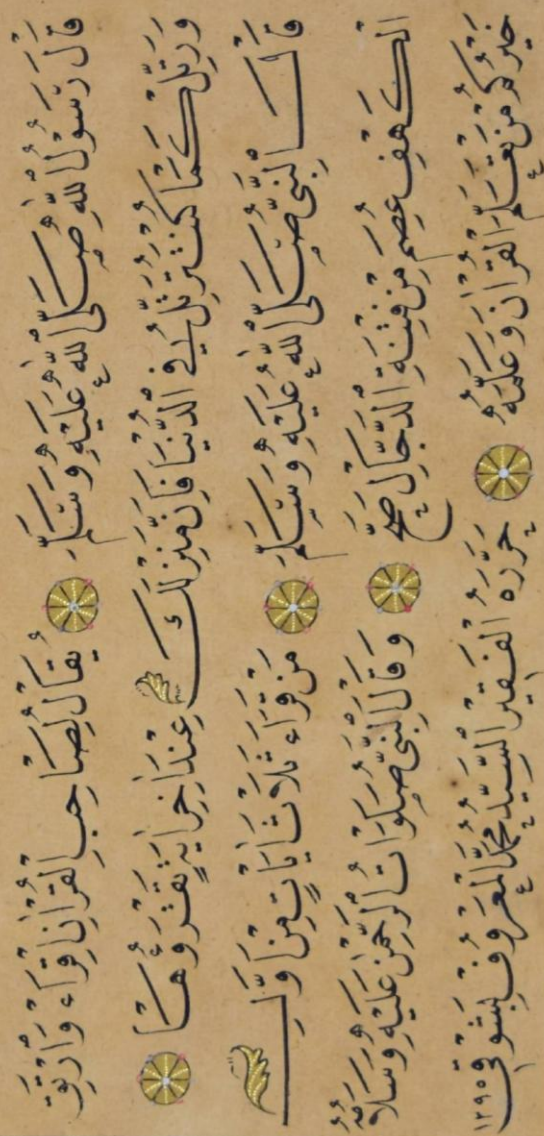 قَالَ رَسُولُ اللّٰهِ صَلَّى اللّٰهُ عَلَيْهِ وَسَلَّمَ يُقَالُ لِصَاحِبِ الْقُرْاٰنِ اِقْرَاْء وَارْتَقِ
وَرَتِّلْ كَمَا كُنْتَ تُرَتِّلُ فِي الدُّنْيَا فَاِنَّ مَنْزِلَكَ عِنْدَ اٰخِرِ اٰيَةٍ تَقْرَؤُهَا
قَالَ النَّبِيُّ صَلَّى اللّٰهُ عَلَيْهِ وَسَلَّمَ مَنْ قَرَاَء ثَلَاثَ اٰيَاتٍ مِنْ اَوَّلِ
الْكَهْفِ عُصِمَ مِنْ فِتْنَةِ الدَّجَّالِ صَحَّ وَقَالَ النَّبِيُّ صَلَوَاتُ الرَّحْمٰنِ عَلَيْهِ وَسَلَامُهُ
خَيْرُكُمْ مَنْ تَعَلَّمَ الْقُرْاٰنَ وَعَلَّمَهُ حَرَّرَهُ الْفَقِيرُ السَّيِّدُ مُحَمَّدُ الْمَعْرُوفُ بِشَوْقِي ١٢٩٥